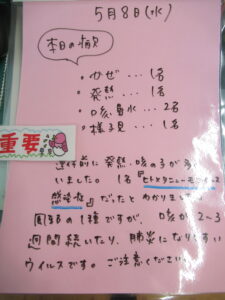 5月8日(水)
本日の病欠
・かぜ…1名
・発熱…1名
・咳、鼻水…2名
・様子見…1名
重要
連休前に発熱・咳の子が多
いました。1名『ヒトメタニューモウイルス
感染症』だったとわかりました
周囲の1種ですが、咳が2~3
週間続いたり、肺炎になりやすい
ウイルスです。ご注意ください。